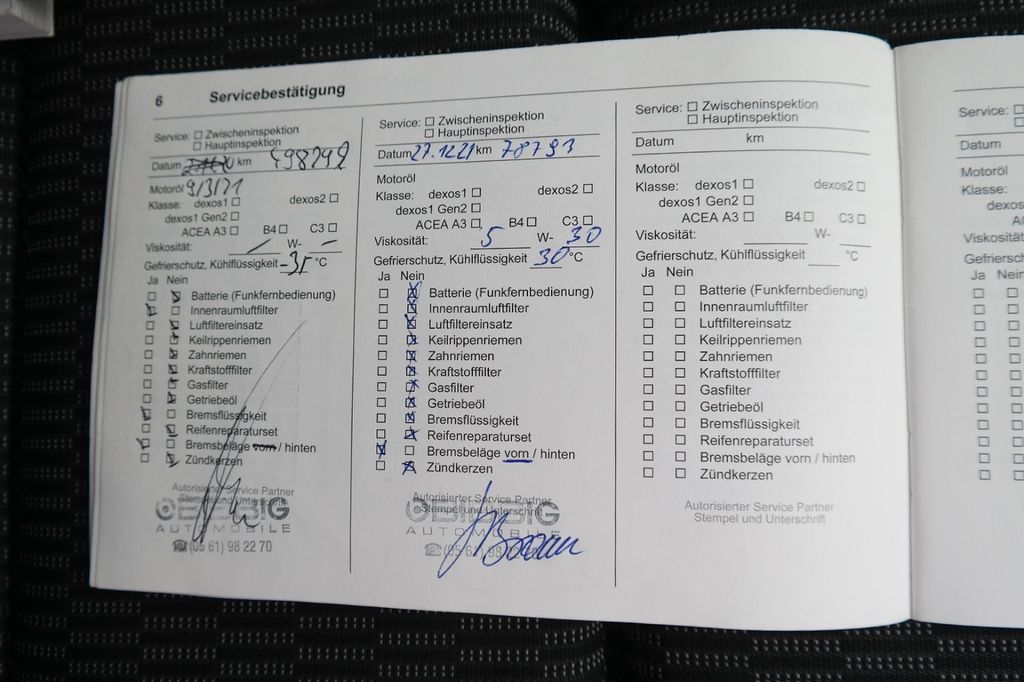 6 Servicebestätigung
Service: Zwischeninspektion
Hauptinspektion
Datum km
9/3/21
Motoröl
Klasse: dexos1 dexos2
dexos1 Gen2
ACEA A3 B4 C3
Viskosität: W-
Gefrierschutz, Kühlflüssigkeit -35 °C
Ja Nein
Batterie (Funkfernbedienung)
Innenraumluftfilter
Luftfiltereinsatz
Keilrippenriemen
Zahnriemen
Kraftstofffilter
Gasfilter
Getriebeöl
Bremsflüssigkeit
Reifenreparaturset
Bremsbeläge vorn / hinten
Zündkerzen
Autorisierter Service Partner
Stempel und Unterschrift
AUTOMOBILE
☎(05 61) 98 22 70
Service: Zwischeninspektion
Hauptinspektion
Datum 27.12.21 km 78793
Motoröl
Klasse: dexos1 dexos2
dexos1 Gen2
ACEA A3 B4 C3
Viskosität: 5 W- 30
Gefrierschutz, Kühlflüssigkeit 30 °C
Ja Nein
Batterie (Funkfernbedienung)
Innenraumluftfilter
Luftfiltereinsatz
Keilrippenriemen
Zahnriemen
Kraftstofffilter
Gasfilter
Getriebeöl
Bremsflüssigkeit
Reifenreparaturset
Bremsbeläge vorn / hinten
Zündkerzen
Autorisierter Service Partner
Stempel und Unterschrift
AUTOMOBILE
☎(05 61) 98 22 70
Service: Zwischeninspektion
Hauptinspektion
Datum km
Motoröl
Klasse: dexos1 dexos2
dexos1 Gen2
ACEA A3 B4 C3
Viskosität: W-
Gefrierschutz, Kühlflüssigkeit °C
Ja Nein
Batterie (Funkfernbedienung)
Innenraumluftfilter
Luftfiltereinsatz
Keilrippenriemen
Zahnriemen
Kraftstofffilter
Gasfilter
Getriebeöl
Bremsflüssigkeit
Reifenreparaturset
Bremsbeläge vorn / hinten
Zündkerzen
Autorisierter Service Partner
Stempel und Unterschrift
Service:
Datum
Motoröl
Klasse:
dexos
AC
Viskosität
Gefriersch
Ja Nein